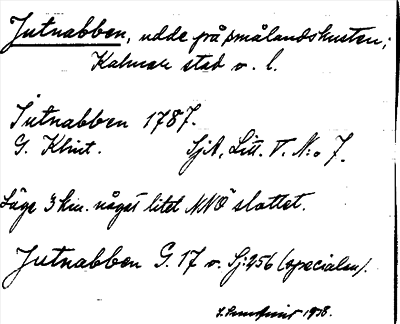 Jutnabben, udde på smålandskusten;
Kalmar stad o. l.
Jutnabben 1787.
G. Klint. SjA, Litt. V. N:o 7.
Läge 3 km. något litet NNO slottet.
Jutnabben G. 17 o. Sj: 256 (specialen).
1938.